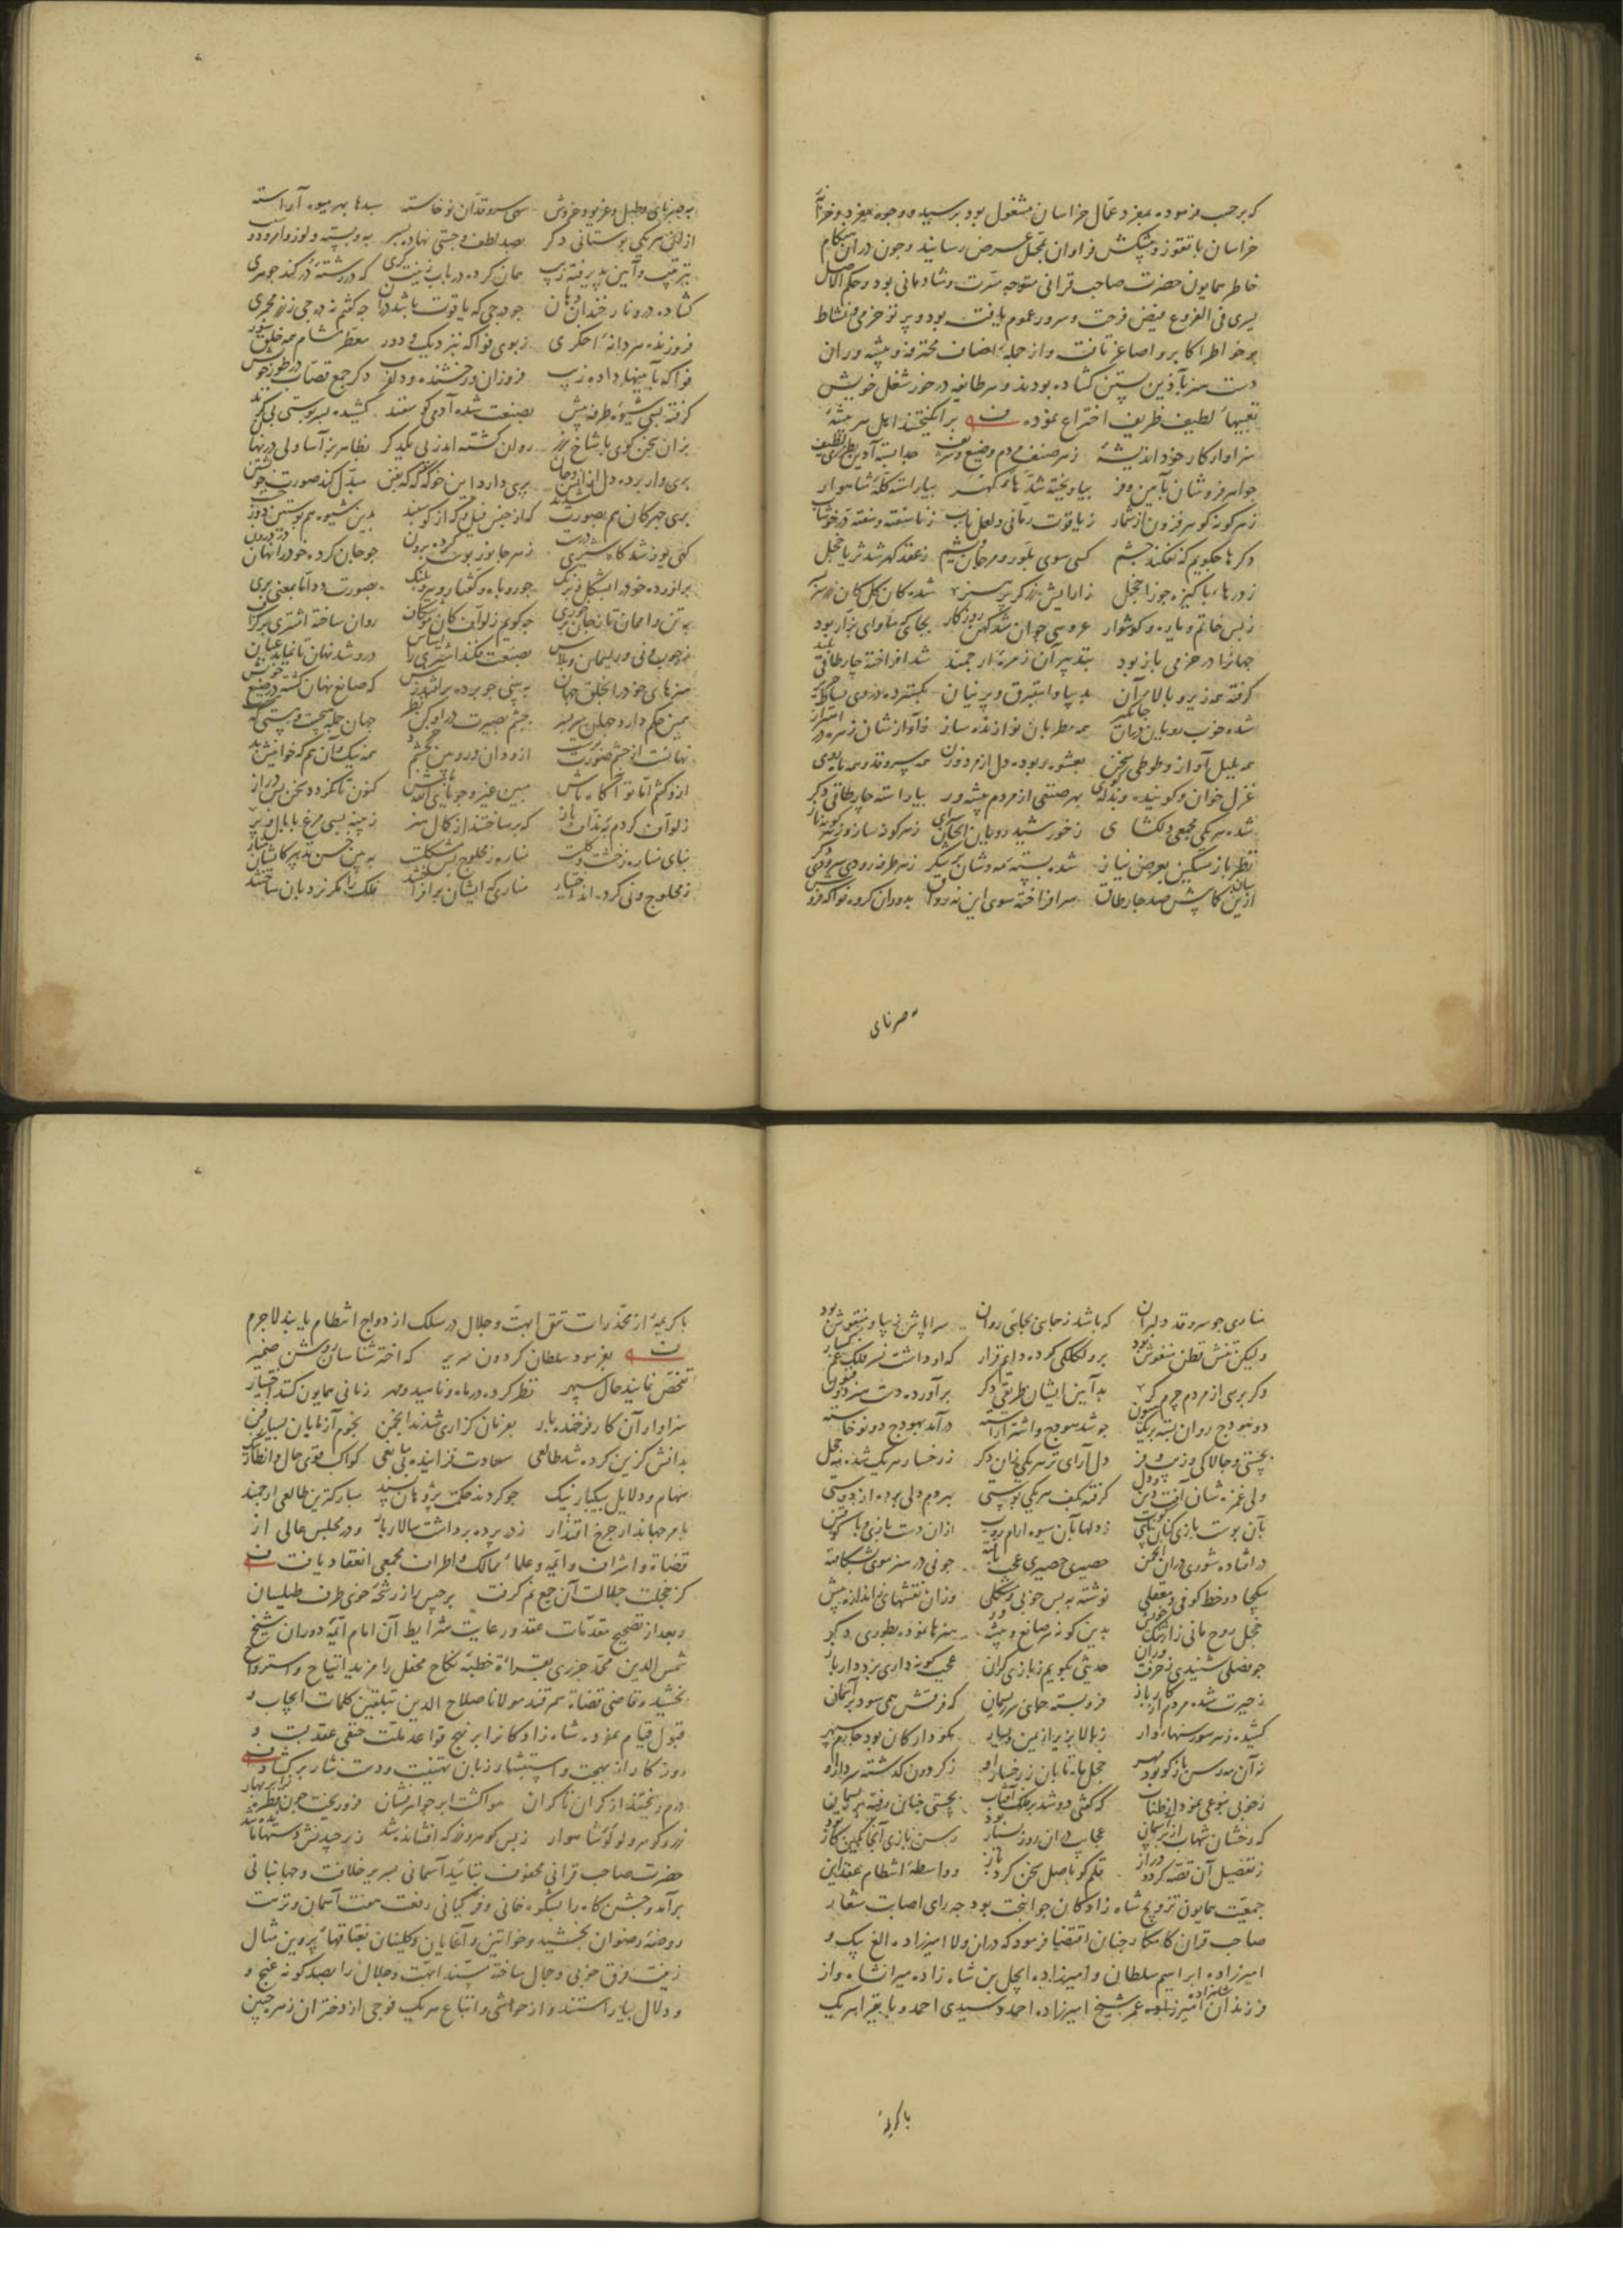 که برحسب فرموده بمفرد عمال خراسان مشغول بود برسید و وجوه مفرد و خزانهٔ
خراسان با تقوز و پیشکش فراوان بمحل عرض رسانید و چون دران هنکام
خاطر همایون حضرت صاحب قرانی متوجه مسرت و شادمانی بود و حکم الاصل
یسری فی الفروع فیض فرحت و سرور عموم یافت بود و پرتو خرمی و نشاط
بر خواطر اکابر و اصاغر تافت و از جمله اصناف محترفه و پیشه وران
دست هنر بآذین بستن کشاده بودند و هر طایفه در خور شغل خویش
تعبیهاء لطیف ظریف اختراع نموده برانکیختند اهل هر پیشهٔ
سزاوار کار خود اندیشهٔ ز هر صنف مردم وضیع و شریف جدا بسته آذین بطرزی لطیف
جواهر فروشان بآیین و فر بیاویخته شدهای کهر بیاراسته کلهٔ شاهوار
ز هر کونه کوهر فزون از شمار ز یاقوت رمانی و لعل ناب
دکرها چکویم که نفکند چشم کسی سوی بلور و مرجان ز عقد کهر شد ثریا خجل
ز درهاء پاکیزه جوزا خجل ز آرایش زرکر پر هنر شده کان کل کان زر
ز بس خاتم و یاره و کوشوار عروسی جوان شد کهن روزکار
جهانرا در خرمی باز بود بتدبیر آن زمرهٔ ارجمند شد افراخته چارطاقی بلند
کرفته همه زیر و بالای آن بدیبا و استبرق و پرنیان بکسترده در وی بساط
شده خوب رویان دران همه مطربان نوازنده ساز ز آواز نشان زهره در اهتزاز
همه بلبل آواز و طوطی سخن بعشوه ربوده دل از مرد و زن همه سرو قد و همه ماه روی
غزل خوان و کوینده و بذله کوی بهر صنفی از مردم پیشه ور بیاراسته چارطاقی دکر
شده هر یکی مجمعی دلکشای ز خورشید رویان ز هر کونه ساز و ز هر کونه ناز
نظرباز مسکین بعرض نیاز شده بسته مهوشان ز هر طرف رودی سرودی دکر
ازین صد چارطاق سر افراخته سوی این نه رواق بدوران کروه فواکه فروش
صرنای
به صرنای و طبل و غریو و خروش سهی سروقدان نوخاسته سبدها بهر میوه آراسته
از ان هر یکی بوستانی دکر بصد لطف و چستی نهاده بسر به و پسته و لوز و امرود و سیب
بترتیب و آیین پذیرفته زیب چنان کرده در باب زینت کری که در رشتهٔ در کند جوهری
کشاده درو نار خندان دهان چو درجی که یاقوت باشد دران چه کفتم نه درجی ز زر مجمری
فروزنده هر دانهٔ اخکری ز بوی فواکه بنزدیک و دور معطر مشام همه خلق سور
فواکه بآیینها داده زیب فروزان و رخشنده و دلفریب دکر جمع قصاب در طور خویش
کرفته بسی شیوهٔ طرفه پیش بصنعت شده آدمی کوسفند کشیده بسر پوستی بی کزند
بزان سخن کوی با شاخ زر روان کشته اندر پی یکدکر بظاهر بز آسا ولی در نهان
پری وار برده دل از انس و جان پری دارد این خو که که مبدل کند صورت خویشتن
پری چهرکان هم بصورت شدند که از جنس فیل و که از کوسفند بدین شیوه هم پوستین دوز
کهی یوز شد کاه شیری ز هر جانور پوست کرده برون چو جان کرده خود را نهان در درون
بر آورده خود را بشکل فرنک چو روباه و کفتار و ببر و پلنک بصورت دد اما بمعنی پری
به تن دام اما ز جان چه کویم ز لواف کان روان ساخته اشتری
ز چوب و نی و ریسمان و پلاس بصنعت فکند اشتری را اساس درو شد نهان تا نماید عیان
هنرهای خود را بخلق جهان به پیش که صانع نهان کشته در صنع خویش
همین حکم دارد جهان سر بسر بچشم بصیرت درو کن نظر جهان جمله هیچست و هستی یکیست
نهانست از چشم صورت پرست ازو دان و رو بین همه نیک و آن هم که خوانیش بد
ازو کفتم اما تو آکاه باش کنون تا نکردد سخن بس دراز
ز لواف کردم بندّاف باز که بر ساختند از کمال هنر ز پنبه بسی مرغ با بال و پر
بنای مناره ز خشت و کلست مناره ز محلوج بس مشکلست به بین حسن تدبیر کان
ز محلوج و نی کرده اند اختیار مناری که ایشان برافراختند فلک را مکر نردبان ساختند
مناری چو سرو قد دلبران که باشد ز جایی بجایی روان سراپا ز دیبا و منقوش بود
ولیکن تنش قطن منفوش بود برو لکلکی کرده دایم قرار که او داشت نسر فلک
دکر بری از مردم چرم کر بدآیین ایشان طریقی دکر برآورده دست هنر
دو هودج روان بسته بر یک هیون چو شد هودج و اشتر آراسته درآمد بهودج دو نوخاسته
بچستی و چالاکی و زیب و فر دل آرای تر هر یکی زان دکر ز رخسار هر یک شده مه خجل
ولی غمزه شان آفت دین و دل کرفته بکف هر یکی پوستی بهر دم دلی برده از دوستی
بآن پوست بازی کنان ز دلها بآن شیوه آرام روب ازان دست بازی
در افتاده شوری دران انجمن حصیری حصیری عجب بافته چو نی در هنر موی بشکافته
بیکجا دو خط کوفی و معقلی نوشته به بس خوبی و مشکلی وزان نقشهای ز اندازه بیش
خجل روح مانی ز بدین کونه هر صانع و پیشه ور هنرها نموده بطوری دکر
چو فصلی شنیدی ز حرفت وران حدیثی بکویم ز بازی کران عجب کونه داری بزد دارباز
ز حیرت شده مردم از فرو بسته جای سر ریسمان که فرقش همی سود بر آسمان
کشیده ز هر سو رسنهاء دار ز بالا بزیر از یمین و یسار نکو دار کان بود
ز آن مه رسن باز کو بود مهر خجل ماه تابان ز رخسار او ز کردون کذشته سر دار او
ز خوبی بنوعی نمودی طناب که کفتی دو شد بر فلک آفتاب بچستی چنان رفته بر ریسمان
که رخشان شهاب از بر آسمان عجایب دران روز بسیار بود رسن بازی آنجا کمین کار بود
ز تفصیل آن قصه کردد دراز قلم کو باصل سخن کرد باز و واسطهٔ انتظام عقد این
جمعیت همایون تزویج شاه زادکان جوانبخت بود چه رای اصابت شعار
صاحب قران کامکار چنان اقتضا فرمود که دران ولا امیرزاده الغ بیک و
امیرزاده ابراهیم سلطان و امیرزاده ایجل بن شاه زاده میرانشاه و از
فرزندان شاهزاده امیرزاده عمر شیخ امیرزاده احمد و سیدی احمد و بایقرا هر یک
با کریمهٔ
با کریمهٔ از مخدرات تتق ابهت و جلال در سلک ازدواج انتظام یابند لاجرم
بفرمود سلطان کردون سریر که اختر شناسان روشن ضمیر
تفحص نمایند حال سپهر نظر کرده در ماه و ناهید و مهر زمانی همایون کنند اختیار
سزاوار آن کار فرخنده بار بفرمان کزاری شدند انجمن نجوم آزمایان بسیار فن
بدانش کزین کرده شد طالعی سعادت فزاینده بی مانعی کواکب قوی حال و انظار
سهام و دلایل بیکبار نیک چو کردند حکمت پژوهان پسند مبارکترین طالعی ارجمند
بامر جهاندار چرخ اقتدار ز پرده برداشت سالار بار و در مجلس عالی از
قضاة و اشراف و ایمه و علماء ممالک و اطراف مجمعی انعقاد یافت
کز خجلت جلالت آن جمع نم کرفت برجیس را ز رشحهٔ خوی طرف طیلسان
و بعد از تصحیح مقدمات عقد و رعایت شرایط آن امام ایمهٔ دوران شیخ
شمس الدین محمد جزری بقراءة خطبهٔ نکاح محفل را مزید ارتیاح و استرواح
بخشید و قاضی قضاة سمرقند مولانا صلاح الدین بتلقین کلمات ایجاب و
قبول قیام نمود و شاه زادکانرا بر نهج قواعد ملت حنفی عقد بست و
روزکار از بهجت و استبشار زبان تهنیت و دست نثار برکشاد
درم ریختند از کران تا کران هوا کشت ابر جواهر فشان فرو ریخت چون قطره ز ابر بهار
زر و کوهر و لولوء شاهوار ز بس کوهر و زر که افشانده شد ز برچیدنش دستها مانده شد
حضرت صاحب قرانی محفوف بتایید آسمانی بسریر خلافت و جهانبانی
برآمد و جشن کاه را بشکوه خانی و فر کیانی رفعت هفت آسمان و نزهت
روضهٔ رضوان بخشید و خواتین و آغایان و کلینان بقتاقهاء پروین مثال
زینت فرق خوبی و جمال ساخته مسند ابهت و جلال را بصد کونه غنج و
و دلال بیاراستند و از حواشی و اتباع هر یک فوجی از دختران زهره جبین